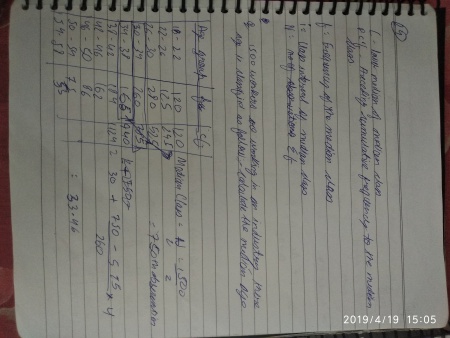 l = Lower median of median class
p.c.f = Preceding cumulative frequency to the median class
f = frequency of the median class
i = Class interval of median class
N = no. of observations Σf
Q 1500 workers are working in an industry
age is classified as follow, calculate the median age.
Age group f c.f
18-22 120 120
22-26 125
26-30 280 525
30-34 260
34-38
38-42 184
42-46 162
46-50 86
50-54 75
54-58
Median Class = N/2 = 1500/2
= 750th observation
30 + 750 - 525/260 × 4
= 33.46
2019/4/19 15:05